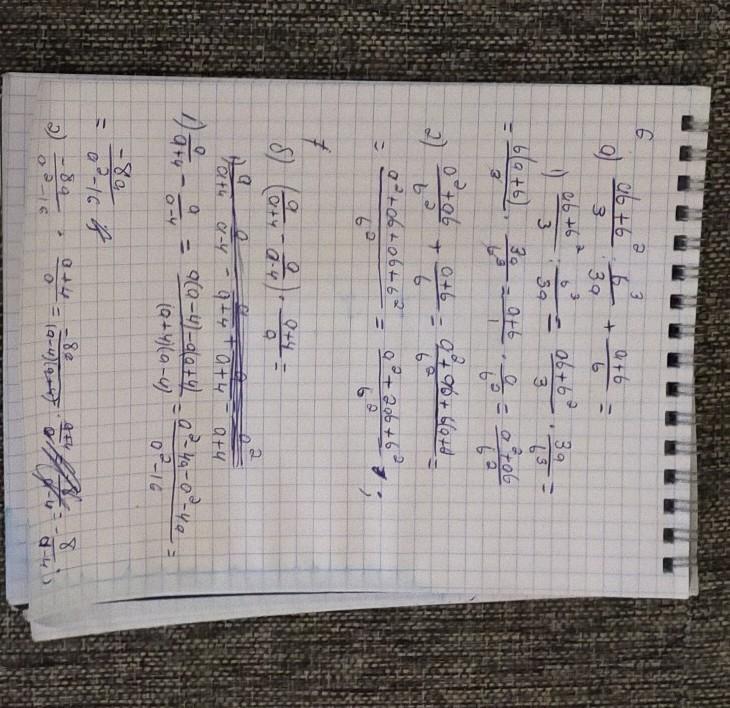 6
а) (ab+b²)/3 : b³/3a + (a+b)/b =
1) (ab+b²)/3 : b³/3a = (ab+b²)/3 · 3a/b³ =
= b(a+b)/3 · 3a/b³ = (a+b)/1 · a/b² = (a²+ab)/b²
2) (a²+ab)/b² + (a+b)/b = (a²+ab+b(a+b))/b² =
= (a²+ab+ab+b²)/b² = (a²+2ab+b²)/b² ;
б) (a/(a+4) - a/(a-4)) · (a+4)/a =
1) a/(a+4) - a/(a-4) = (a(a-4)-a(a+4))/((a+4)(a-4)) = (a²-4a-a²-4a)/(a²-16) =
= -8a/(a²-16)
2) -8a/(a²-16) · (a+4)/a = -8a/((a-4)(a+4)) · (a+4)/a = -8/(a-4) ;